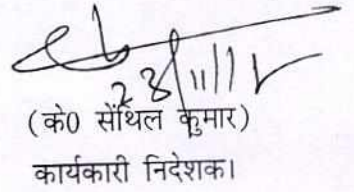 23/11/12
(के0 सेंथिल कुमार)
कार्यकारी निदेशक।